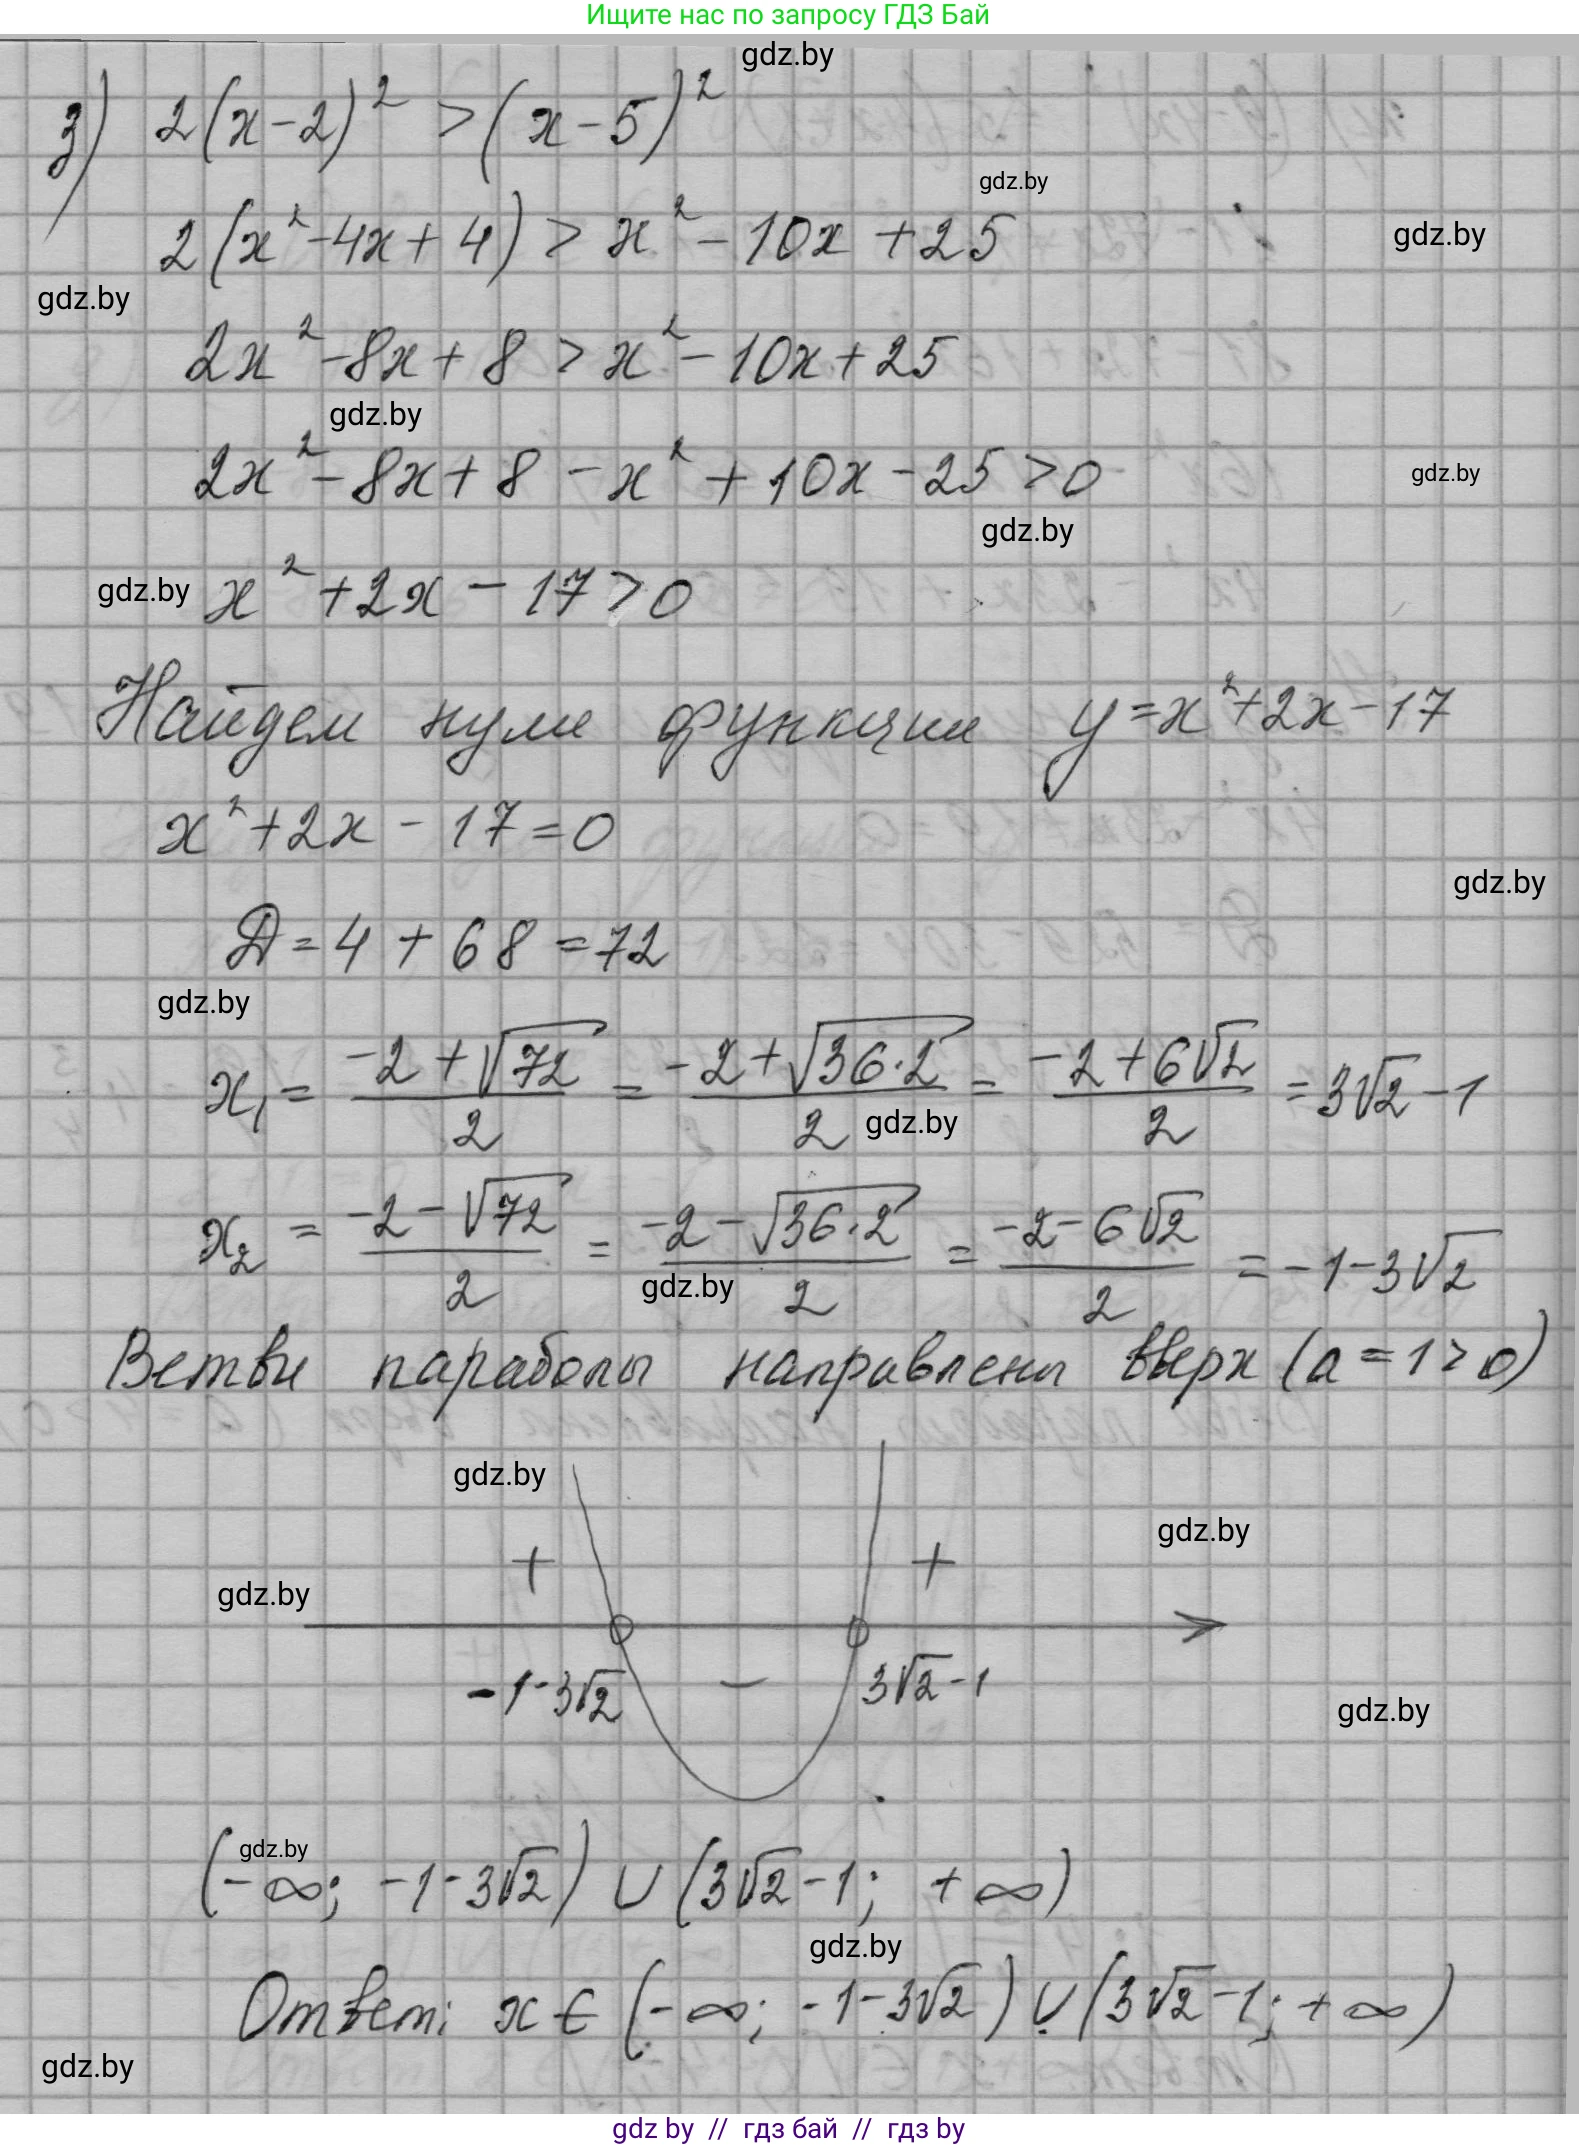 Ищите нас по запросу ГДЗ Бай
gdz.by
з) 2(x-2)² > (x-5)²
gdz.by
2(x²-4x+4) > x² - 10x + 25
gdz.by
gdz.by
2x² - 8x + 8 > x² - 10x + 25
gdz.by
2x² - 8x + 8 - x² + 10x - 25 > 0
gdz.by
gdz.by
gdz.by
x² + 2x - 17 > 0
Найдем нули функции y = x² + 2x - 17
x² + 2x - 17 = 0
gdz.by
Д = 4 + 68 = 72
gdz.by
x₁ = (-2 + √72)/2 = (-2 + √(36·2))/2 = (-2 + 6√2)/2 = 3√2 - 1
gdz.by
x₂ = (-2 - √72)/2 = (-2 - √(36·2))/2 = (-2 - 6√2)/2 = -1 - 3√2
gdz.by
Ветви параболы направлены вверх (a = 1 > 0)
gdz.by
gdz.by
+ +
gdz.by
-1-3√2 - 3√2-1
gdz.by
gdz.by
(-∞; -1-3√2) ∪ (3√2-1; +∞)
gdz.by
Ответ: x ∈ (-∞; -1-3√2) ∪ (3√2-1; +∞)
gdz.by
gdz by // гдз бай // гдз by